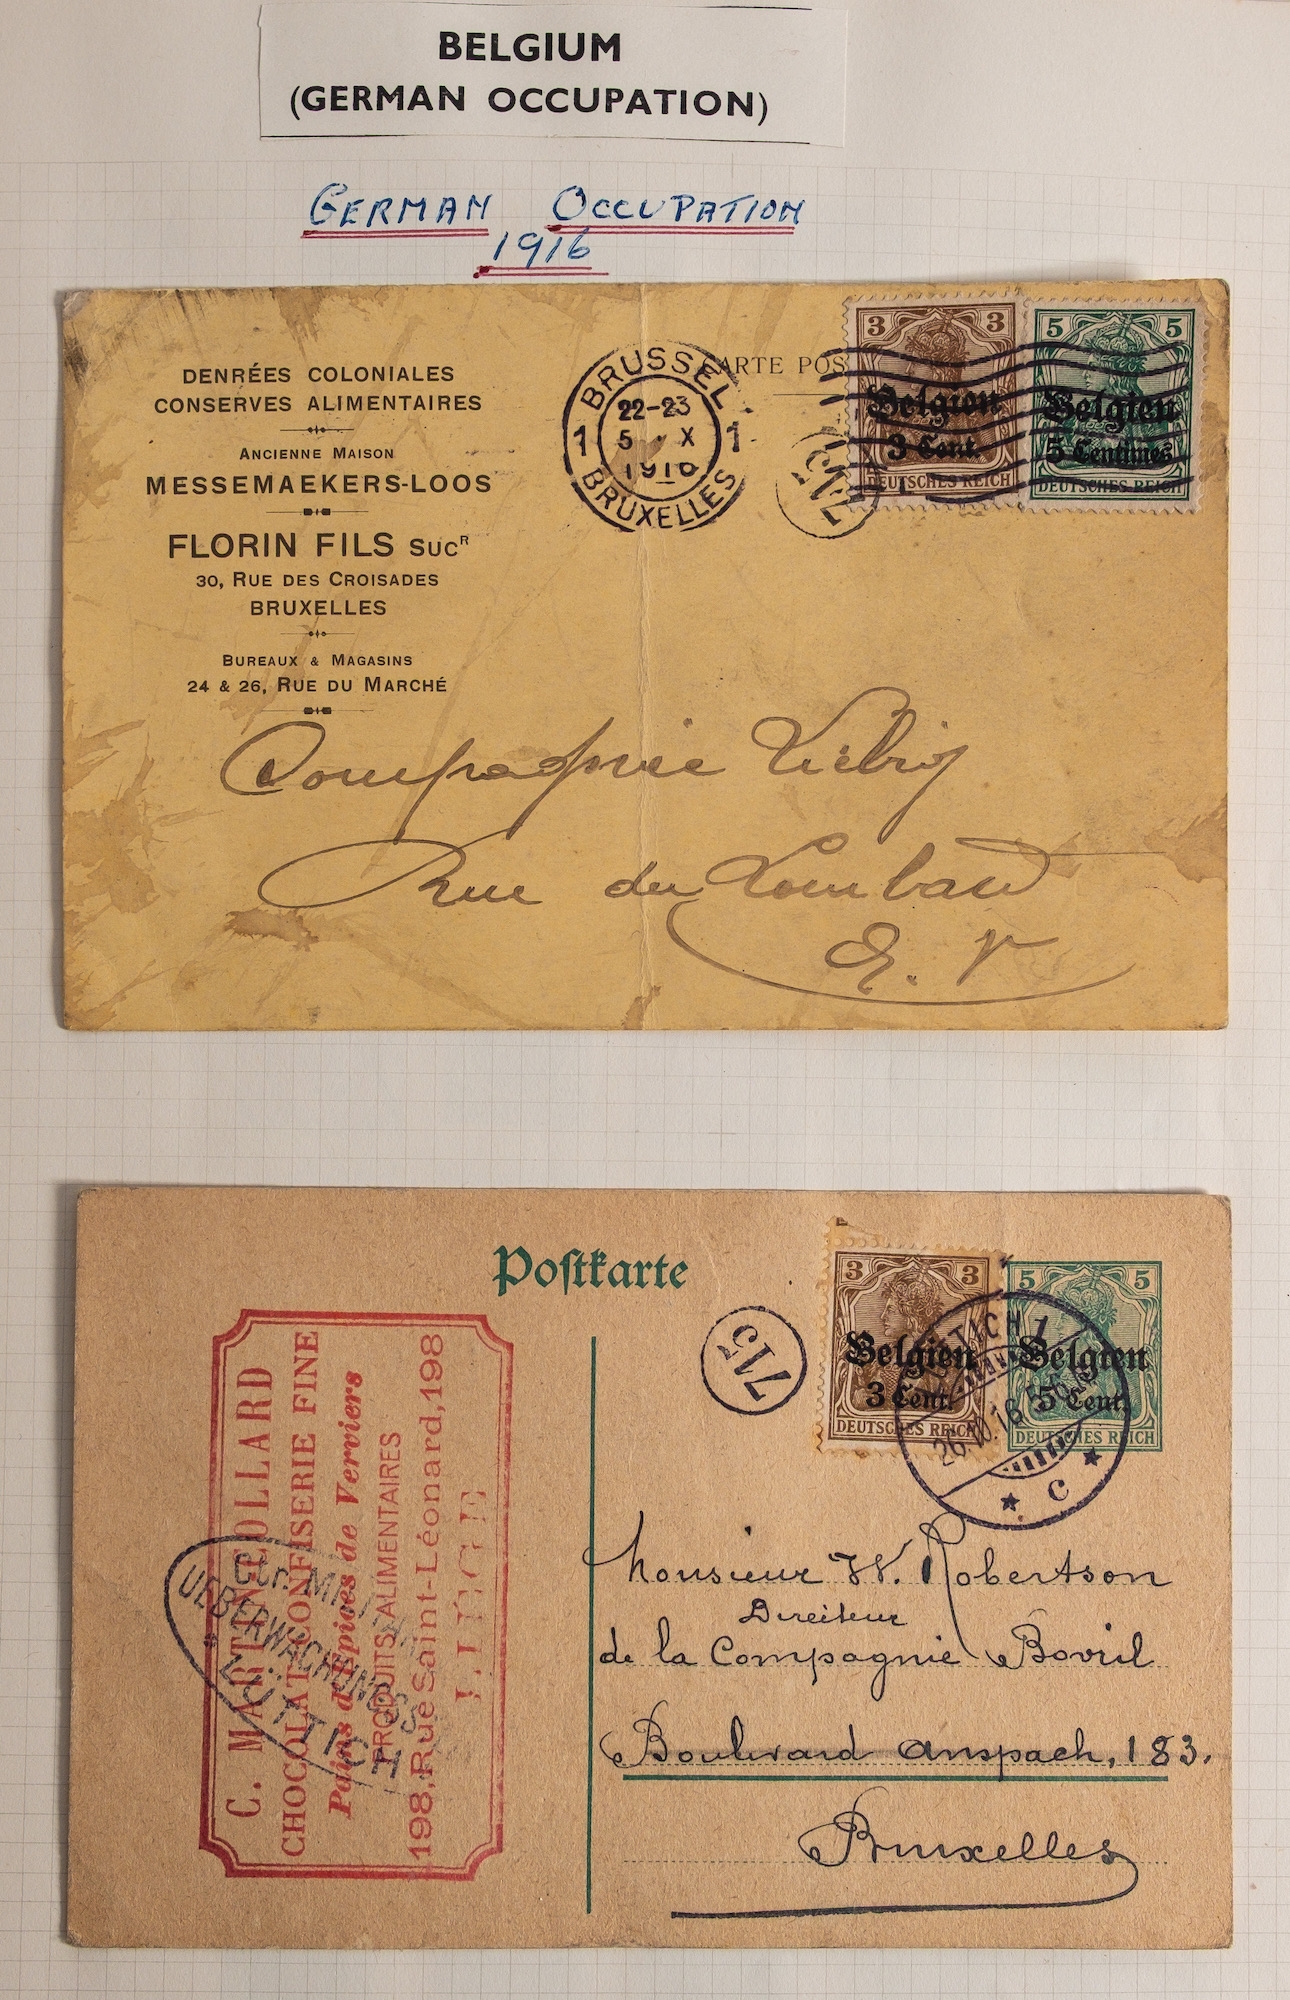 BELGIUM
(GERMAN OCCUPATION)
GERMAN OCCUPATION
1916
DENRÉES COLONIALES
CONSERVES ALIMENTAIRES
ANCIENNE MAISON
MESSEMAEKERS-LOOS
FLORIN FILS SUCR
30, RUE DES CROISADES
BRUXELLES
BUREAUX & MAGASINS
24 & 26, RUE DU MARCHÉ
BRUSSEL
22-23
1 5 X 1
1916
BRUXELLES
CARTE POS
3 3
Belgien
3 Cent.
DEUTSCHES REICH
5 5
Belgien
5 Centimes
DEUTSCHES REICH
Compagnie Liebig
Rue du Lombard
E. V
Postkarte
C. MARTIN COLLARD
CHOCOLAT CONFISERIE FINE
Pains d'Epices de Verviers
PRODUITS ALIMENTAIRES
198, Rue Saint-Léonard, 198
LIEGE
UEBERWACHUNGSS
LÜTTICH
715
3 3
Belgien
3 Cent.
DEUTSCHES REICH
5 5
Belgien
5 Cent.
DEUTSCHES REICH
LÜTTICH 1
★ C ★
Monsieur W. Robertson
Directeur
de la Compagnie Bovril
Boulevard Anspach, 183.
Bruxelles